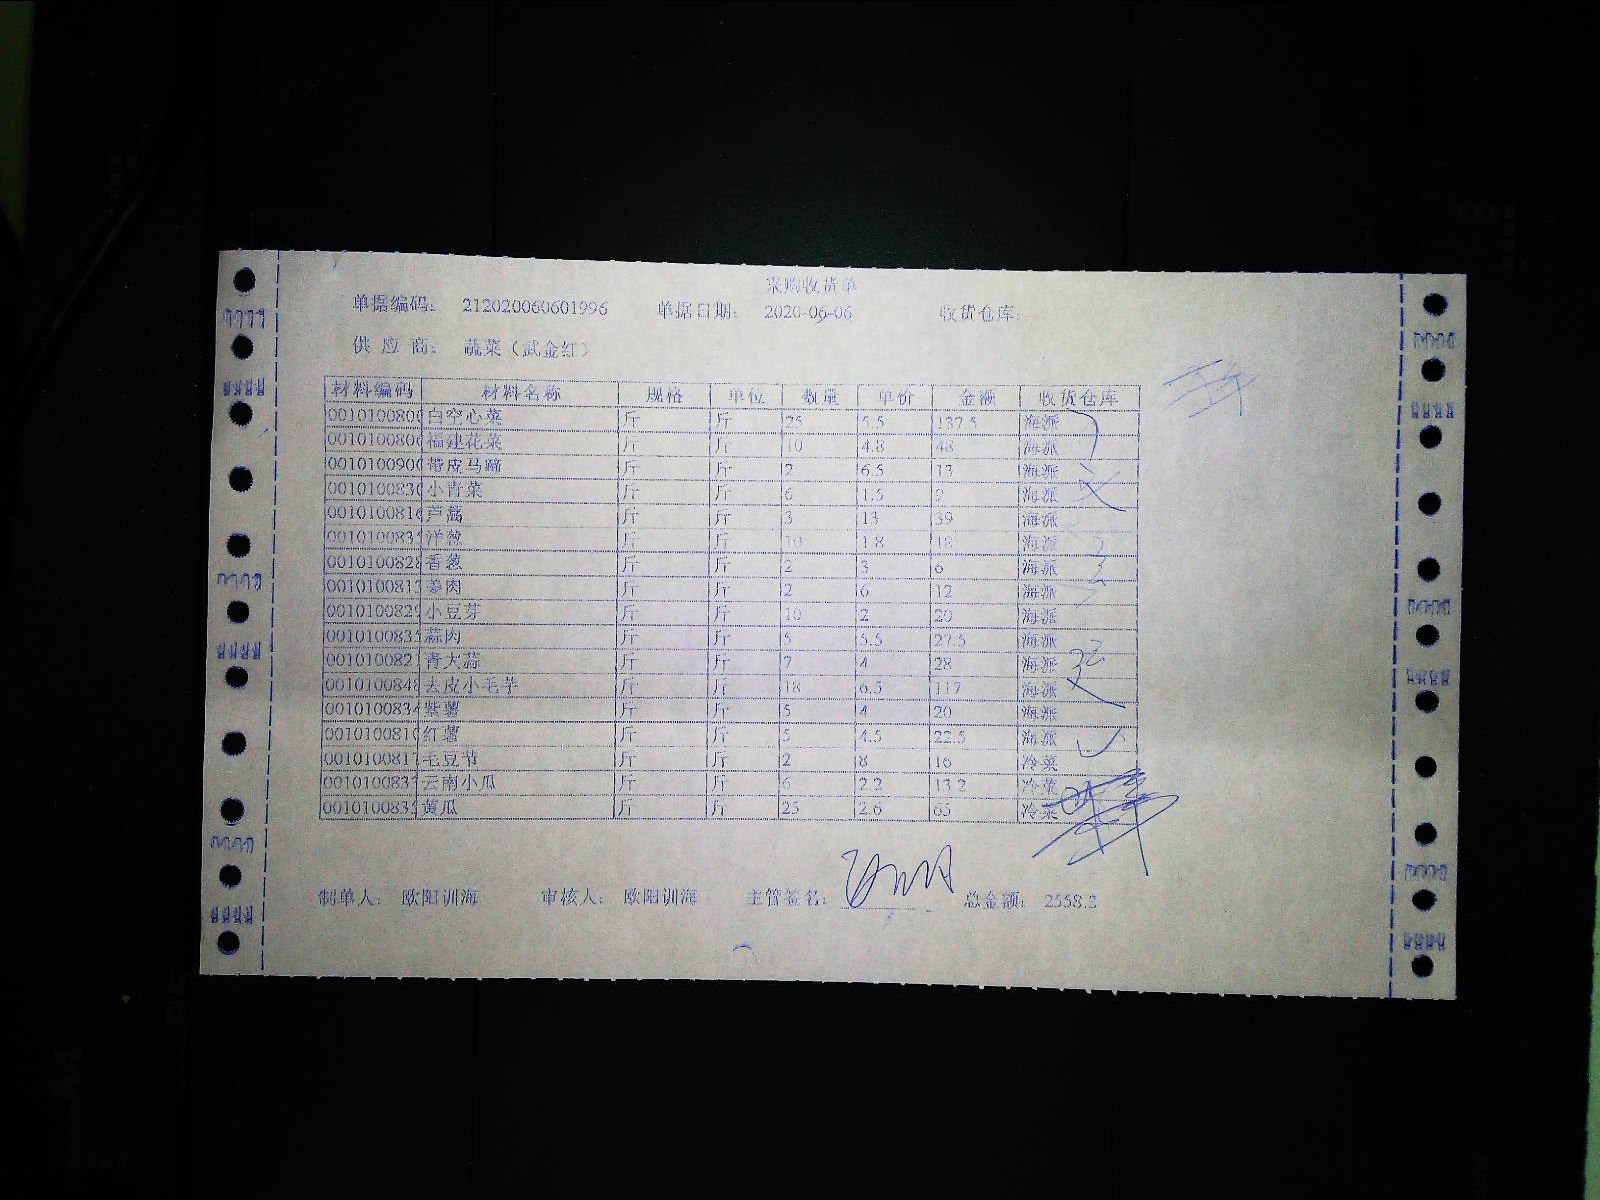 采购收货单
单据编码： 212020060601996 单据日期： 2020-06-06 收货仓库：
供 应 商： 蔬菜（武金红）
材料编码 材料名称 规格 单位 数量 单价 金额 收货仓库
001010080 白空心菜 斤 斤 25 5.5 137.5 海派
001010080 福建花菜 斤 斤 10 4.8 48 海派
001010090 带皮马蹄 斤 斤 2 6.5 13 海派
001010083 小青菜 斤 斤 6 1.5 9 海派
001010081 芦蒿 斤 斤 3 13 39 海派
001010083 洋葱 斤 斤 10 1.8 18 海派
001010082 香葱 斤 斤 2 3 6 海派
001010081 姜肉 斤 斤 2 6 12 海派
001010082 小豆芽 斤 斤 10 2 20 海派
001010083 蒜肉 斤 斤 5 5.5 27.5 海派
001010082 青大蒜 斤 斤 7 4 28 海派
001010084 去皮小毛芋 斤 斤 18 6.5 117 海派
001010083 紫薯 斤 斤 5 4 20 海派
001010081 红薯 斤 斤 5 4.5 22.5 海派
001010081 毛豆节 斤 斤 2 8 16 冷菜
001010083 云南小瓜 斤 斤 6 2.2 13.2 冷菜
001010083 黄瓜 斤 斤 25 2.6 65 冷菜
制单人： 欧阳训海 审核人： 欧阳训海 主管签名： 总金额： 2558.3